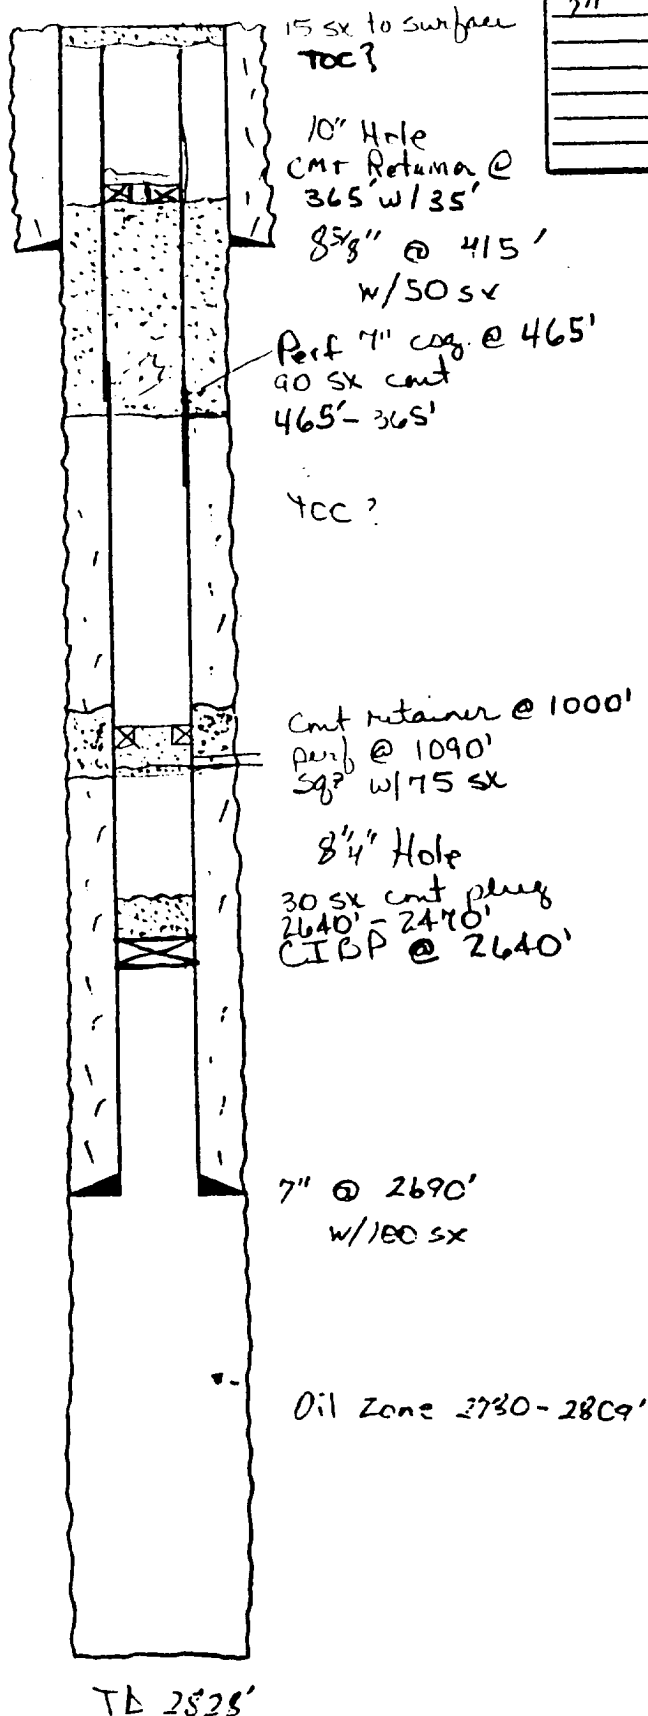 7"
15 sx to surface
TOC?
10" Hole
CMT Retainer @
365' w/35'
8 5/8" @ 415'
w/50 sx
Perf 7" csg. @ 465'
90 sx cmt
465'-365'
TCC ?
Cmt retainer @ 1000'
perf @ 1090'
Sqz w/75 sx
8 1/4" Hole
30 sx cmt plug
2640'-2470'
CIBP @ 2640'
7" @ 2690'
w/100 sx
Oil Zone 2730-2809'
TD 2828'